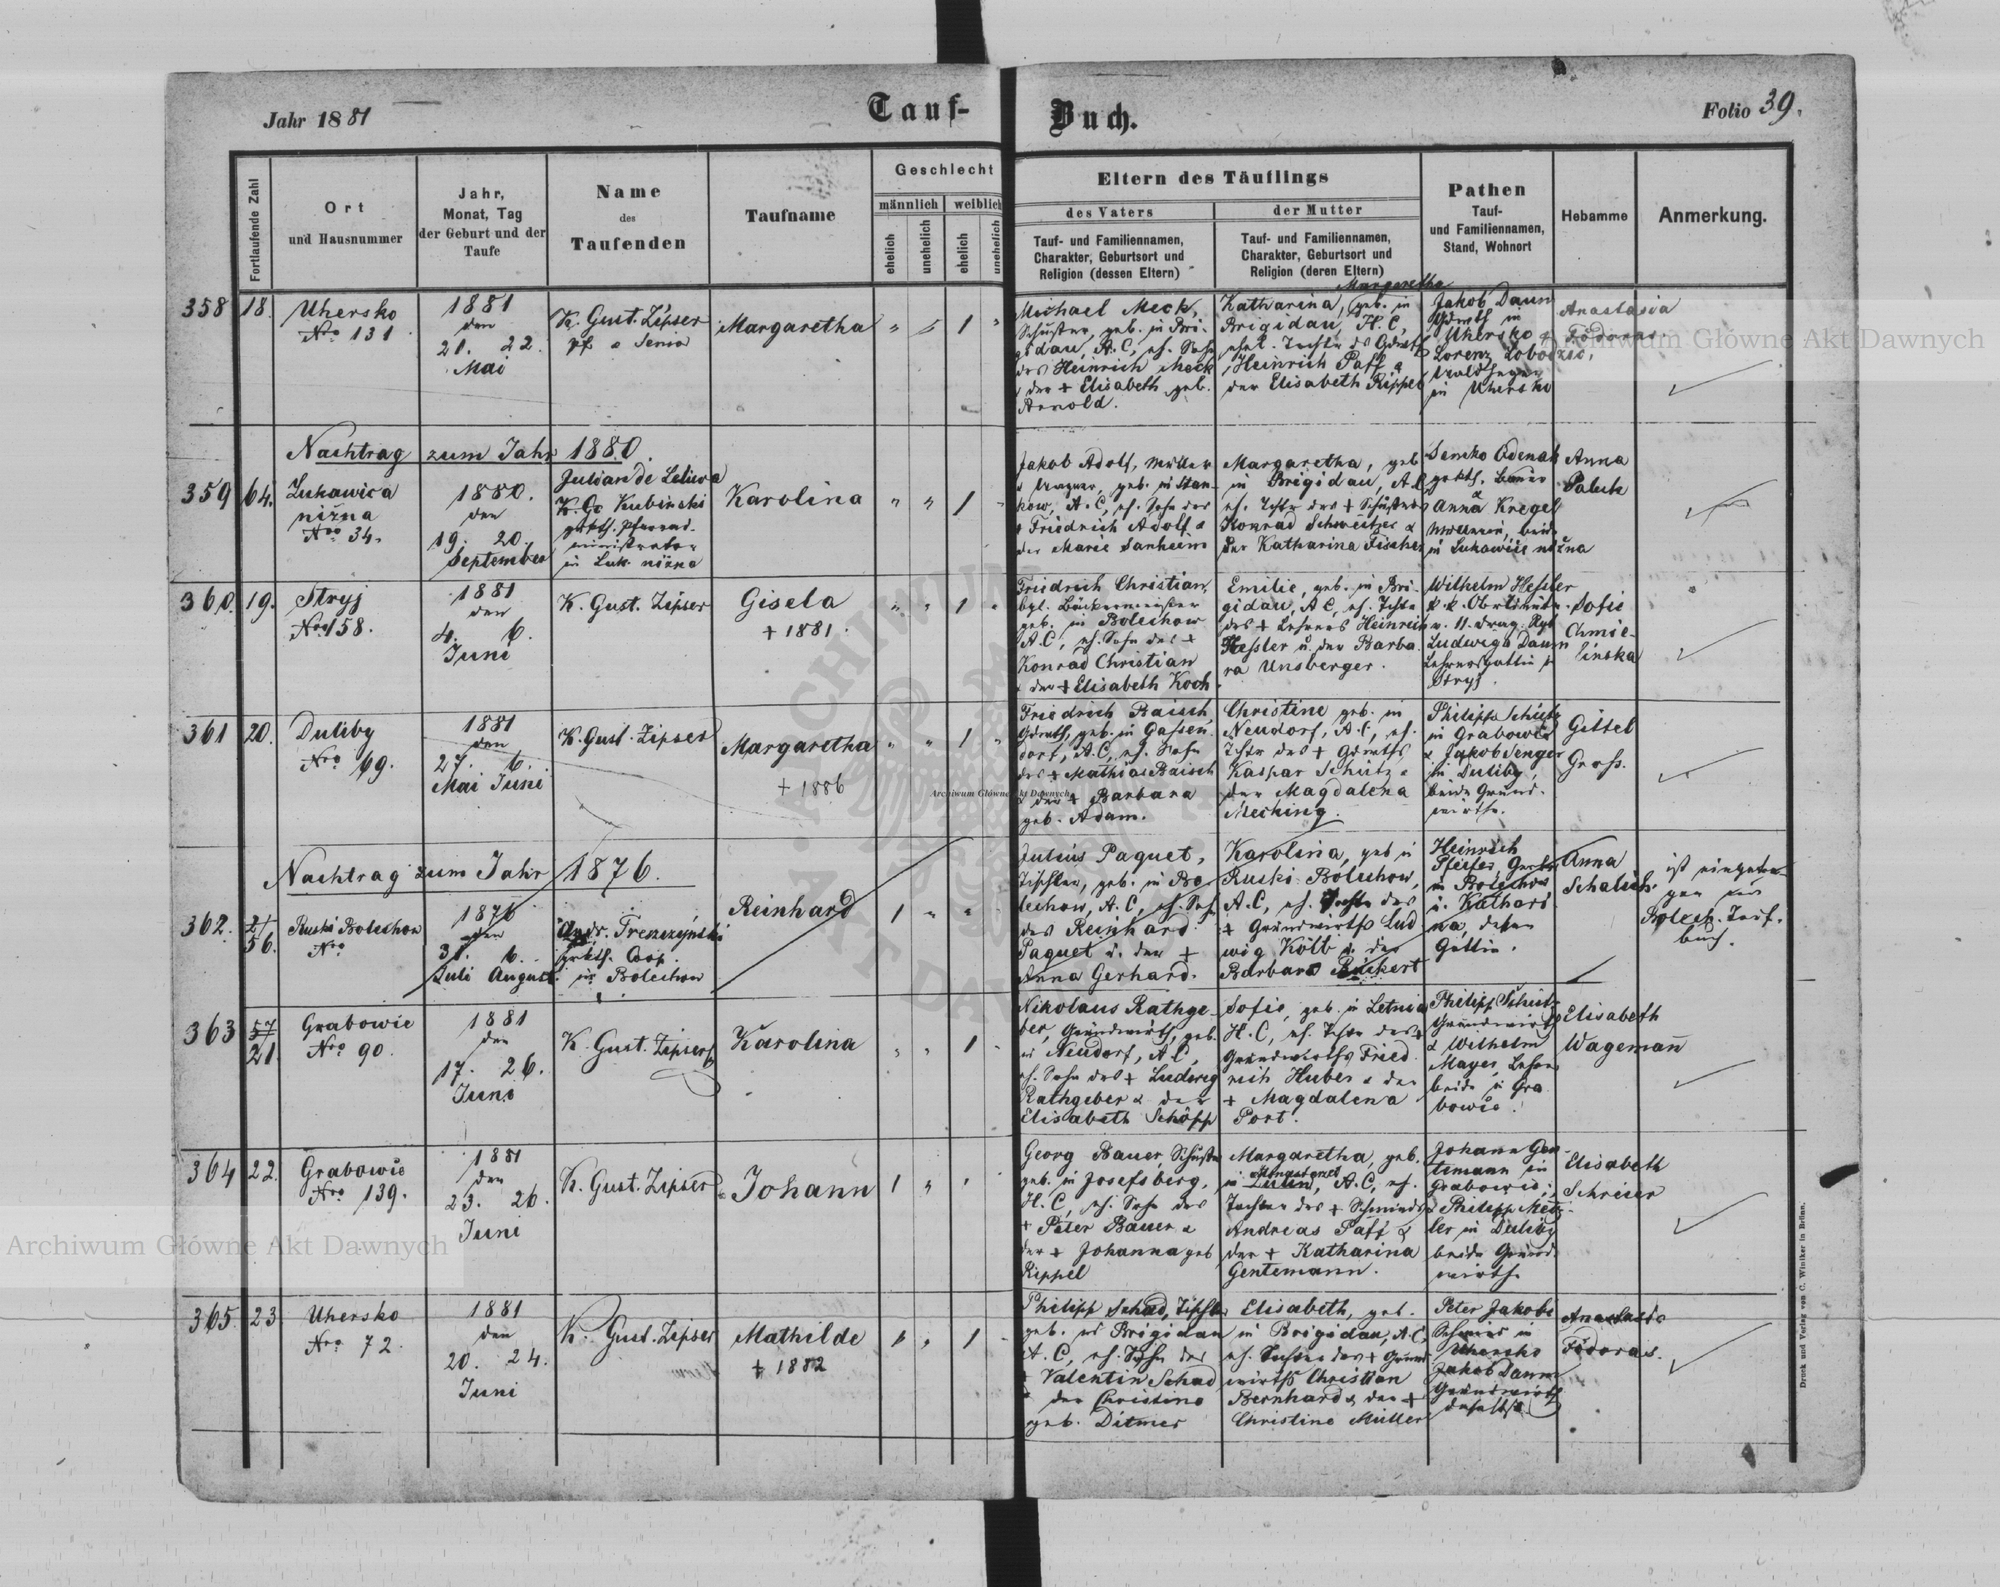 Jahr 1881
Tauf-
Buch.
Folio 39.
Fortlaufende Zahl
Ort
und Hausnummer
Jahr,
Monat, Tag
der Geburt und der
Taufe
Name
des
Taufenden
Taufname
Geschlecht
männlich
weiblich
ehelich
unehelich
ehelich
unehelich
Eltern des Täuflings
des Vaters
Tauf- und Familiennamen,
Charakter, Geburtsort und
Religion (dessen Eltern)
der Mutter
Tauf- und Familiennamen,
Charakter, Geburtsort und
Religion (deren Eltern)
Pathen
Tauf-
und Familiennamen,
Stand, Wohnort
Hebamme
Anmerkung.
358
18.
Uhersko
Nro 131
1881
den
21. 22.
Mai
K. Gust. Zipser
Pf. & Senior
Margaretha
" " 1 "
Michael Meck,
Schuster, geb. in Bri-
gidau, A.C, eh. Sohn
des Heinrich Meck
& der + Elisabeth geb.
Arnold.
Margaretha
Katharina, geb. in
Brigidau, H.C,
Heinrich Paff &
der Elisabeth Rippel
Jakob Daum
in
Uhersko &
Lorenz
in Uhersko
Anastasia
Fedoras
Nachtrag zum Jahr 1880.
359
64.
Lukawica
nižna
Nro 34.
1880.
den
19. 20.
September
Julian de Leliwa
K. Go Kubinski
in Luk. nižna
Karolina
" " 1 "
Jakob Adolf, Müller
& Wagner, geb. in Stan-
kow, A.C, eh. Sohn des
Friedrich Adolf &
der Marie Sanheim
Margaretha, geb.
in Brigidau, A.C
eh. Tchtr des + Schusters
Konrad Schweitzer &
der Katharina Fischer
Semko Odenak
grkth. Bauer
&
Anna Kregel
in Lukawice nižna
Anna
Paluk
360.
19.
Stryj
Nro 158.
1881
den
4. 6.
Juni
K. Gust. Zipser
Gisela
+ 1881.
" " 1 "
Friedrich Christian,
bgl. Bäckermeister
geb. in Bolechow
A.C, eh. Sohn des +
Konrad Christian
& der + Elisabeth Koch
Emilie, geb. in Bri-
gidau, A C, eh. Tchtr
des + Lehrers Heinrich
Hessler u. der Barba-
ra Unsberger.
Wilhelm Hessler
k. k. Oberlieutn.
v. 11. Drag. Rgt
Ludwiga Daum
Lehrersgattin
Stryj.
Sofie
Chmie-
linska
361
20.
Duliby
Nro 69.
1881
den
27. 6.
Mai Juni
K. Gust. Zipser
Margaretha
+ 1886
" " 1 "
Friedrich Baisch
Gdwrth, geb. in Gassen-
dorf, A.C, eh. Sohn
des + Mathias Baisch
& der + Barbara
geb. Adam.
Christine geb. in
Neudorf, A.C, eh.
Tchtr des + Gdwrths
Kaspar Schütz &
der Magdalena
Mecking.
Philipp Schütz
in Grabowce
& Jakob Senger
in Duliby,
beide Grund-
wirthe.
Gittel
Gross.
Nachtrag zum Jahr 1876.
362.
21
56.
Ruski Bolechow
Nro
1876
den
31. 6.
Juli August
Andr.
grkth. Coop.
in Bolechow
Reinhard
1 " "
Julius Paquet,
Tischler, geb. in Bo-
lechow, A.C, eh. Sohn
des Reinhard
Paquet u. der +
Anna Gerhard.
Karolina, geb in
Ruski Bolechow,
A.C, eh. Tochter des
+ Grundwirths Lud
wig Kolb u. der
Barbara Rückert
Heinrich
Pfeifer,
in Bolechow
u. Kathari-
na, dessen
Gattin.
Anna
Schalich
ist eingetra-
gen im
Bolech. Tauf-
buch.
363
57
21.
Grabowie
Nro 90.
1881
den
17. 26.
Juni
K. Gust. Zipser
Karolina
" " 1
Nikolaus Rathge-
ber, Grundwirth, geb.
in Neudorf, A.C,
eh. Sohn des + Ludwig
Rathgeber & der
Elisabeth Schöpp
Sofie, geb. in Letnia
H.C, eh. Tchtr des +
Grundwirths Fried-
rich Huber & der
+ Magdalena
Port.
Philipp Schütz
Grundwirth
& Wilhelm
Mayer, Lehrer
beide in Gra-
bowie.
Elisabeth
Wagemañ
364
22.
Grabowie
Nro 139.
1881
den
23. 26.
Juni
K. Gust. Zipser
Johann
1 " '
Georg Bauer, Schuster
geb. in Josefsberg,
H.C, eh. Sohn des
+ Peter Bauer &
der + Johanna geb
Rippel
Margaretha, geb.
in A.C, eh.
Tochter des + Schmieds
Andreas Paff &
der + Katharina
Gentemann.
Johann Gen
temann in
Grabowie,
& Philipp Metz-
ler in Duliby
beide Grund-
wirthe
Elisabeth
Schreier
365
23
Uhersko
Nro 72.
1881
den
20. 24.
Juni
K. Gust. Zipser
Mathilde
+ 1882
" " 1 "
Philipp Schad, Tischler
geb. in Brigidau
A.C, eh. Sohn des
+ Valentin Schad
& der Christine
geb. Ditmer
Elisabeth, geb.
in Brigidau, A.C,
eh. Tochter des + Grund-
wirths Christian
Bernhard & der +
Christine Müller
Peter Jakobi
Schmied in
Uhersko
Jakob Daum
Grundwirth
daselbst
Anastasia
Fedoras.
Druck und Verlag von C. Winiker in Brünn.
Archiwum Główne Akt Dawnych
Archiwum Główne Akt Dawnych
Archiwum Główne Akt Dawnych